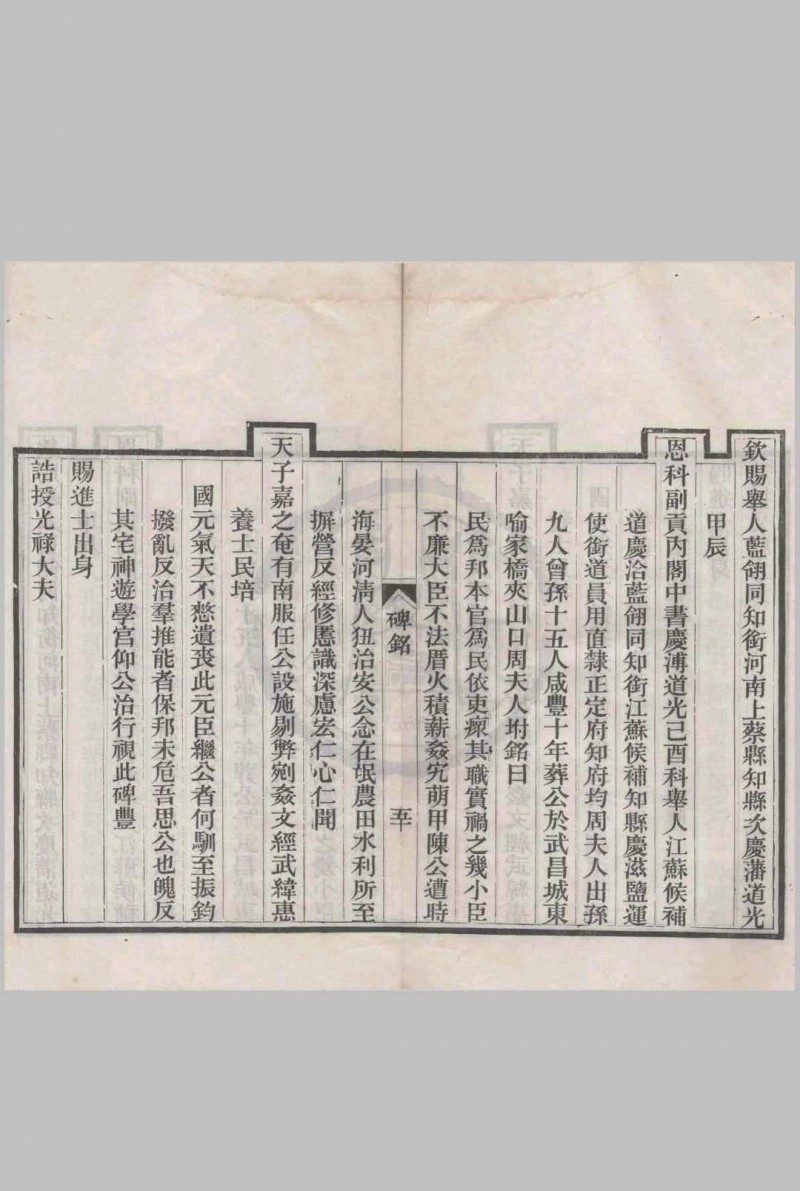 欽賜舉人藍翎同知銜河南上蔡縣知縣次慶藩道光
甲辰
恩科副貢內閣中書慶溥道光己酉科舉人江蘇候補
道慶洽藍翎同知銜江蘇候補知縣慶滋鹽運
使銜道員用直隸正定府知府均周夫人出孫
九人曾孫十五人咸豐十年葬公於武昌城東
喻家橋夾山口周夫人坿銘曰
民爲邦本官爲民依吏瘝其職實禍之幾小臣
不廉大臣不法厝火積薪姦宄萌甲陳公遭時
碑銘
五十
海晏河清人狃治安公念在氓農田水利所至
摒營反經修慝識深慮宏仁心仁聞
天子嘉之奄有南服任公設施剔弊剜姦文經武緯惠
養士民培
國元氣天不憗遺喪此元臣繼公者何馴至振鈞
撥亂反治羣推能者保邦未危吾思公也魄反
其宅神遊學宮仰公治行視此碑豐
賜進士出身
誥授光祿大夫